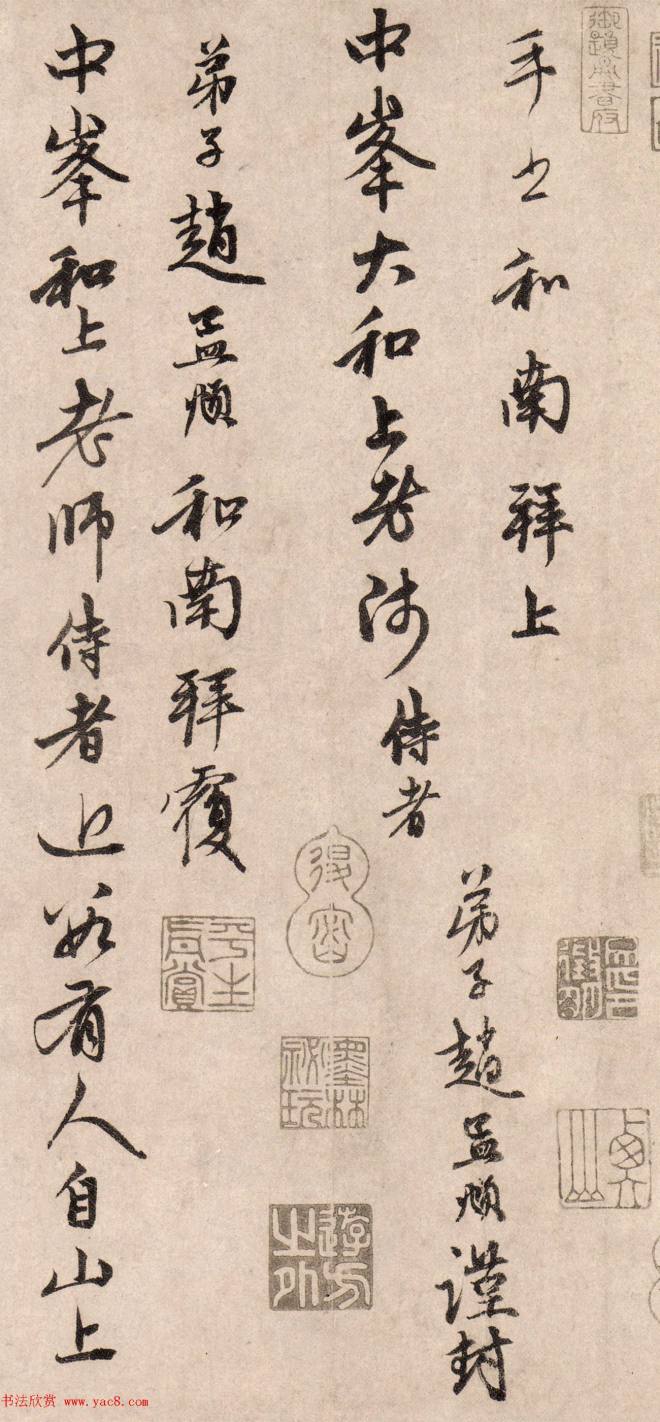 手书和南拜上
中峯大和上老师侍者
弟子赵孟頫謹封
弟子趙孟頫和南拜覆
中峯和上老师侍者近数有人自山上
平生真賞
墨林祕玩
书法欣赏 www.yac8.com